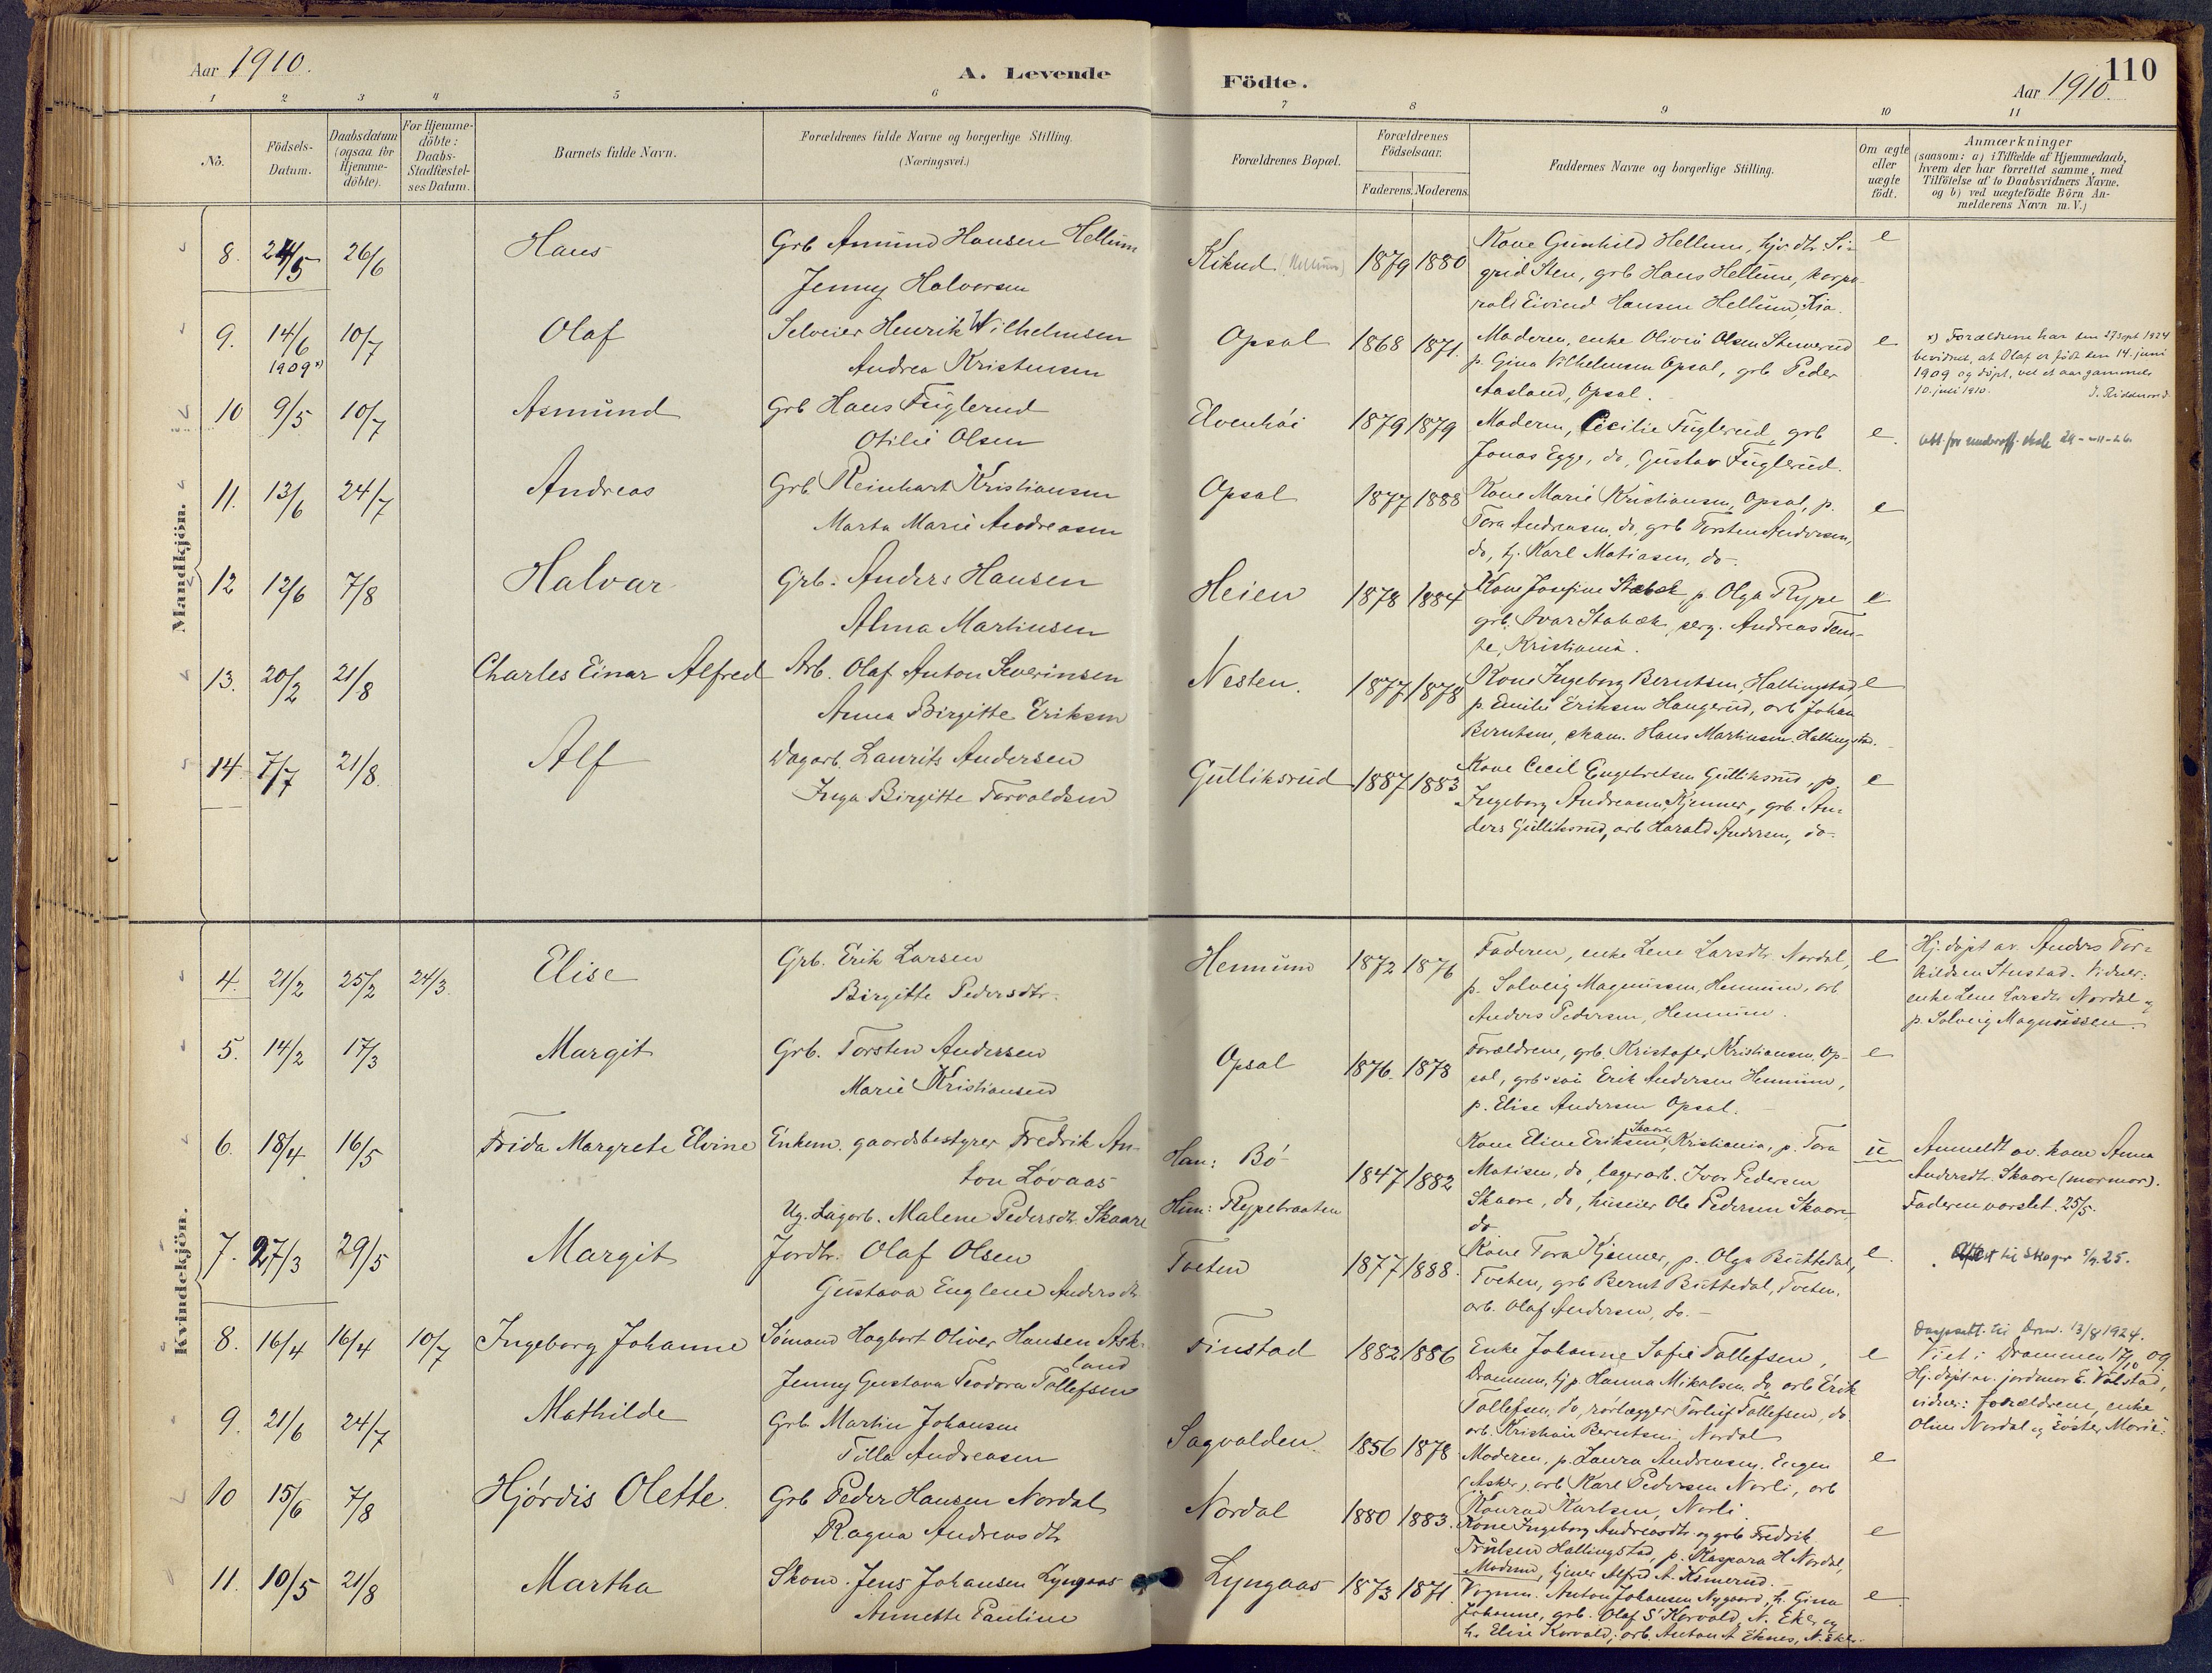 Aar 1910.
A. Levende
Födte.
110
Aar 1910.
1 2 3 4 5 6 7 8 9 10 11
No.
Födsels-Datum.
Daabsdatum (ogsaa for Hjemme-döbte).
For Hjemme-döbte: Daabs-Stadfæstel-ses Datum.
Barnets fulde Navn.
Forældrenes fulde Navne og borgerlige Stilling.
(Næringsvei.)
Forældrenes Bopæl.
Forældrenes Födselsaar.
Faderens. Moderens.
Faddernes Navne og borgerlige Stilling.
Om ægte eller uægte födt.
Anmærkninger
(saasom: a) i Tilfælde af Hjemmedaab,
hvem der har forrettet samme, med
Tilföielse af to Daabsvidners Navne,
og b) ved uægtefödte Börn An-
melderens Navn m.V.)
Mandkjön.
8. 24/5 26/6 Hans
Grb Amund Hansen Hellum
Jenny Halvorsen
Kikud (Hellum) 1879 1880
Kone Gunhild Hellum, hjv. dtr. Si-
grid Sten, grb Hans Hellum, korpo-
rals Eivind Hansen Hellum, Kia.
e
9. 14/6 1909 x) 10/7 Olaf
Selveier Henrik Wilhelmsen
Andrea Kristensen
Opsal 1868 1871.
Moderen, enke Olivia Olsen
p. Gina Vilhelmsen Opsal, grb Peder
Aasland, Opsal.
e
x) Forældrene har den 27 sept 1924
bevidnet, at Olaf er født den 14. juni
1909 og døpt, vel et aar gammel
10. juli 1910. J. Ridderord
10 9/5 10/7 Asmund
Grb Hans Fuglerud
Otilie Olsen
Elvenhöi 1879 1879
Moderen, Cecilie Fuglerud, grb
Jonas Egge, do, Gustav Fuglerud.
e.
11. 13/6 24/7 Andreas
Grb. Reinhart Kristiansen
Marta Marie Andreasen
Opsal 1877 1888
Kone Marie Kristiansen, Opsal, p.
Tora Andreasen, do, grb Torsten Andersen,
do, tj. Karl Matiasen, do.
e
12 12/6 7/8 Halvar
Grb. Anders Hansen
Alma Martinsen
Heien 1878 1884
Kone Josefine Stabæk p Olga Rype
grb. Ivar Stabæk, serg. Andreas Tem-
te, Kristiania.
e
13. 20/2 21/8 Charles Einar Alfred
Arb. Olaf Anton Severinsen
Anna Birgitte Eriksen
Nesten. 1877 1878
Kone Ingeborg Berntsen, Hallingstad
p. Emilie Eriksen Haugerud, arb Johan
Berntsen, skom. Hans Martinsen, Hallingstad.
e
14. 7/7 21/8. Alf
Dagarb. Laurits Andersen
Inga Birgitte Torvaldsen
Gulliksrud 1887 1883
Kone Cecil Engebretsen Gulliksrud, p.
Ingeborg Andreasen, Kjenner, grb. An-
ders Gulliksrud, arb Harald Andersen, do.
e
Kvindekjön.
4. 21/2 25/2 24/3. Elise
Grb. Erik Larsen
Birgitte Pedersdtr.
Hennum 1872 1876
Faderen, enke Lene Larsdtr Nordal,
p. Solveig Magnussen, Hennum, arb
Anders Pedersen, Hennum.
e
Hj. døpt av Anders Tor-
kildsen Stustad. Vidner:
enke Lene Larsdtr Nordal og
p. Solveig Magnussen.
5. 14/2 17/3 Margit
Grb. Torsten Andersen
Marie Kristiansen
Opsal 1876. 1878
Forældrene, grb. Kristofer Kristiansen, Op-
sal, grb søn Erik Andersen Hennum,
p. Elise Andersen Opsal.
e
6. 18/4 16/5 Frida Margrete Elvine
Enkem. gaardsbestyrer Fredrik An-
ton Lövaas
Ug. Lagarb. Malene Pedersdtr. Skaare
Han: Bö
Hun: Rypebraaten
1847 1882
Kone Eline Eriksen Skaare, Kristiania, p. Tora
Matisen, do, lagerarb. Ivar Pedersen
Skaare, do, huseier Ole Pedersen Skaare,
do
u
Anmeldt av kone Anna
Andersdtr. Skaare (mormor).
Faderen varslet. 25/5.
7. 27/3 29/5 Margit
Jordbr. Olaf Olsen
Gustava Euglene Andersdtr
Tveten 1877 1888.
Kone Tora Kjenner, p. Olga Buttedal,
Tveten, grb Bernt Buttedal, Tveten,
arb. Olaf Andersen, do.
e.
8. 16/4 16/4 10/7 Ingeborg Johanne
Sömand Hagbart Oliver Hansen Ask-
land
Jenny Gustava Teodora Tollefsen
Finstad 1882 1886
Enke Johanne Sofie Tollefsen,
Drammen, tjp. Hanna Mikalsen, do, arb Erik
Tollefsen, do, rørlægger Torleif Tollefsen, do.
arb. Kristian Berntsen, Nordal
e
Daapsatt. til Drm. 13/8 1924.
Viet i Drammen 17/10 09
Hj. døpt av jordmor E. Valstad,
vidner: forældrene, enke
Oline Nordal og søster Marie.
9. 21/6 24/7 Mathilde
Grb Martin Johansen
Tilla Andreasen
Sagvolden 1856 1878
Moderen, p. Laura Andreasen, Engen
(Asker), arb Karl Pedersen Norli, arb
Konrad Karlsen, Norli.
e
10 15/6 7/8 Hjördis Olette
Grb Peder Hansen Nordal
Ragna Andreasdtr
Nordal 1880 1883.
Kone Ingeborg Andreasdtr og grb Fredrik
Trulsen Hallingstad, p. Kaspara H Nordal,
Modum, tjener Alfred A.
e
11. 10/5 21/8 Martha
Skom. Jens Johansen Lyngaas
Annette Pauline
Lyngaas 1873 1871.
Vognm. Anton Johansen Nygaard, h. Gina
Johanne, grb. Olaf S. Korvald, N. Eker, og
h. Elise Korvald, arb. Anton A. Eknes, N. Eker.
e